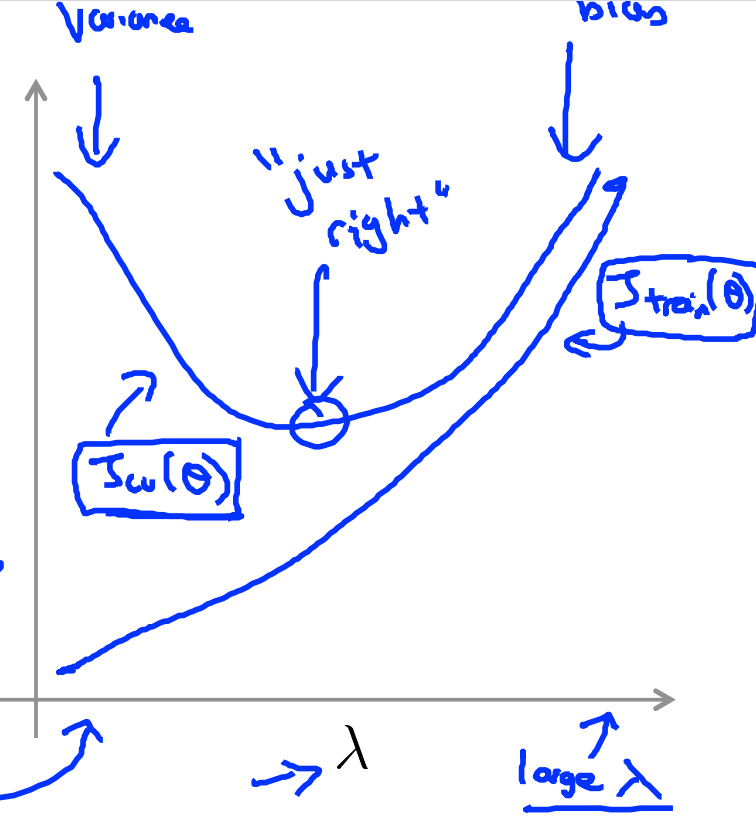 Variance
bias
"just
right"
J train (θ)
J cv (θ)
λ
large λ